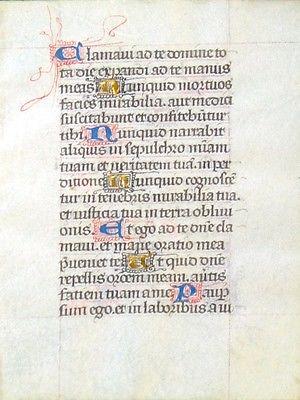 Clamaui ad te domine to
ta die expandi ad te manus
meas Nunquid mortuos
facies mirabilia aut medici
suscitabunt et confitebuntur
tibi Nunquid narrabit
aliquis in sepulchro miam
tuam et ueritatem tuam in per
ditione Nunquid cognosce
tur in tenebris mirabilia tua
et iusticia tua in terra obliui
onis Et ego ad te dne cla
maui et mane oratio mea
preueniet te Ut quid dne
repellis orcem meam auertis
faciem tuam a me Paup
sum ego et in laboribus a iu